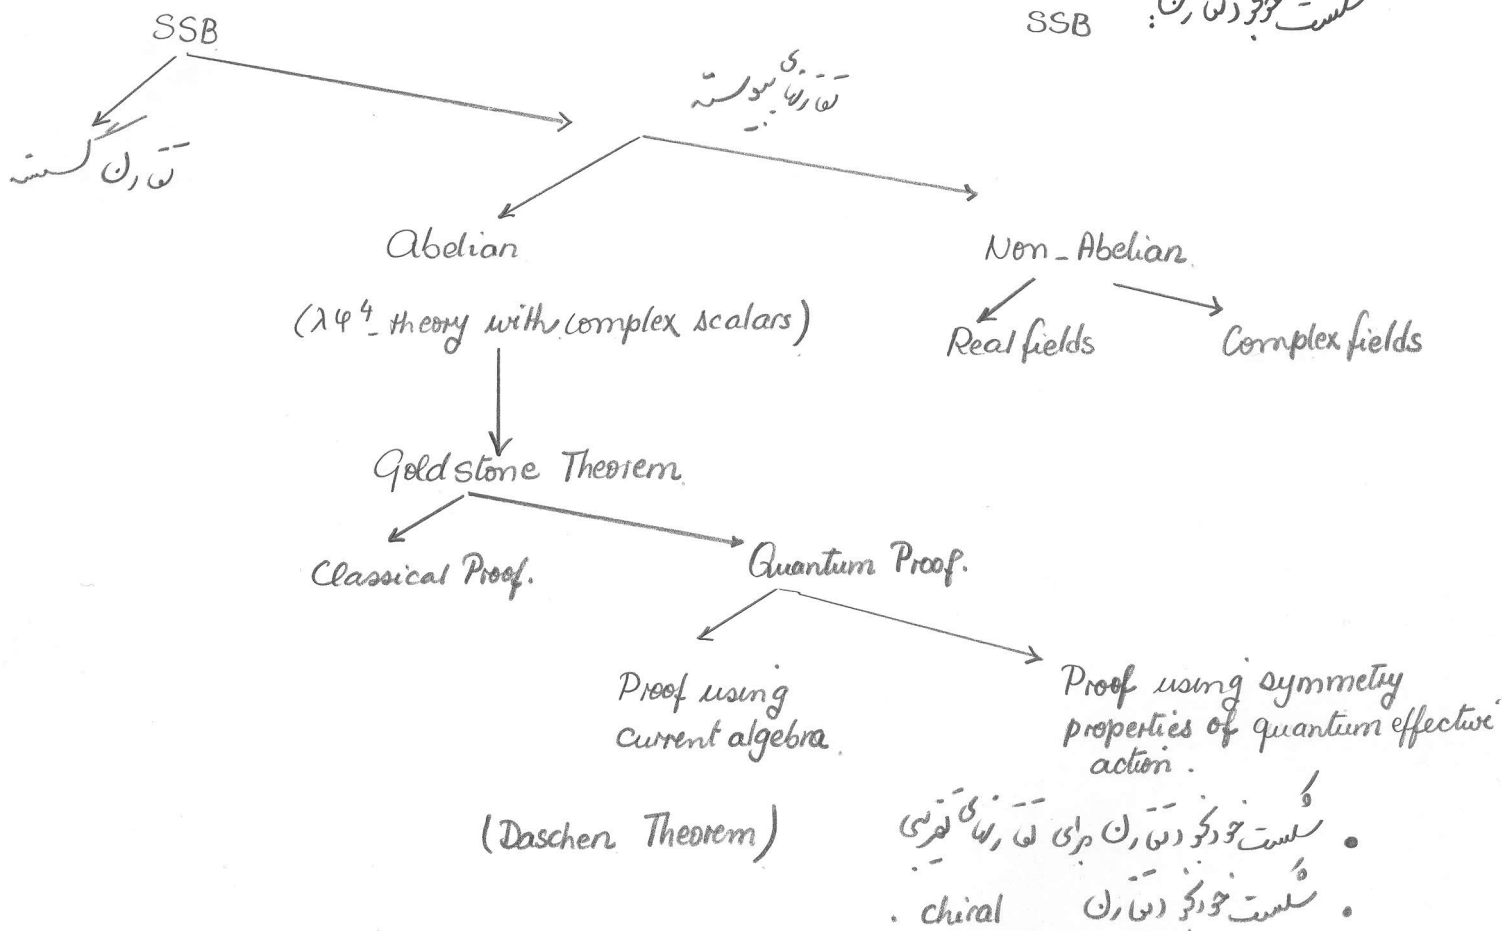 شکست خودبخود تقارن: SSB
SSB
تقارنهای پیوسته
تقارن گسسته
Abelian
Non-Abelian.
(λφ⁴-theory with complex scalars)
Real fields
Complex fields
Goldstone Theorem.
Classical Proof.
Quantum Proof.
Proof using
current algebra.
(Daschen Theorem)
Proof using symmetry
properties of quantum effective
action.
• شکست خودبخود تقارن برای تقارنهای تقریبی
• شکست خودبخود تقارن chiral .